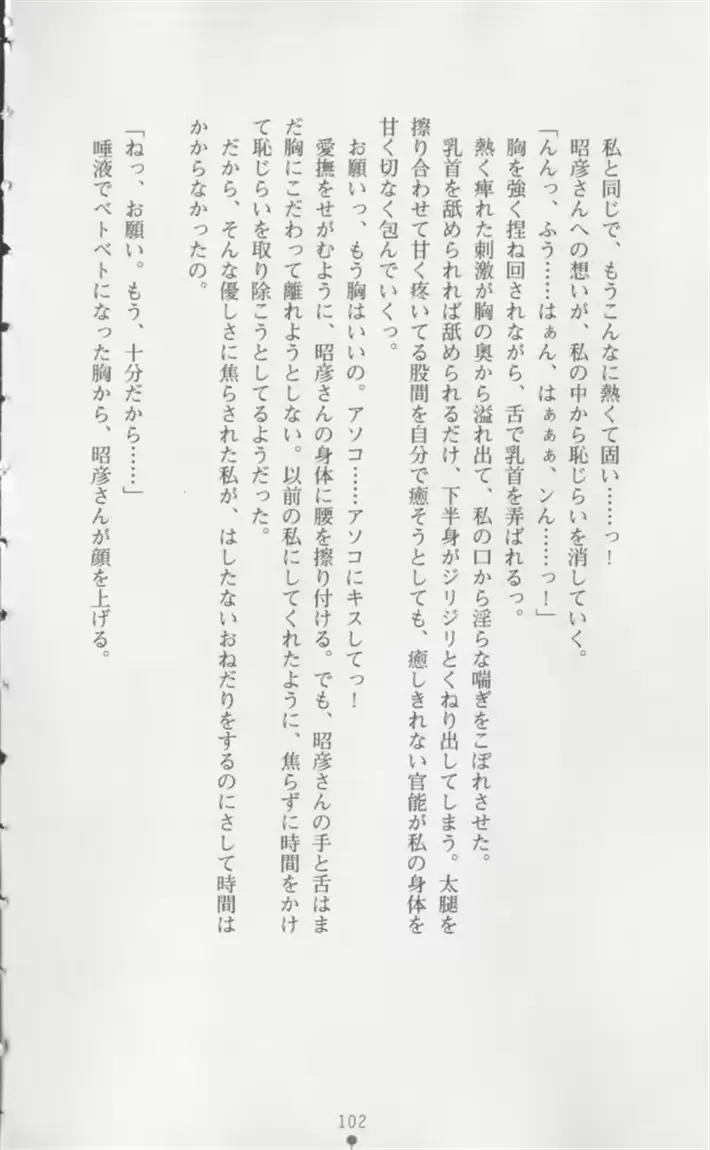 私と同じで、もうこんなに熱くて固い……っ！
昭彦さんへの想いが、私の中から恥じらいを消していく。
「んんっ、ふう……はぁん、はぁぁぁ、ンん……っ！」
胸を強く捏ね回されながら、舌で乳首を弄ばれるっ。
熱く痺れた刺激が胸の奥から溢れ出て、私の口から淫らな喘ぎをこぼれさせた。
乳首を舐められれば舐められるだけ、下半身がジリジリとくねり出してしまう。太腿を
擦り合わせて甘く疼いてる股間を自分で癒そうとしても、癒しきれない官能が私の身体を
甘く切なく包んでいくっ。
お願いっ、もう胸はいいの。アソコ……アソコにキスしてっ！
愛撫をせがむように、昭彦さんの身体に腰を擦り付ける。でも、昭彦さんの手と舌はま
だ胸にこだわって離れようとしない。以前の私にしてくれたように、焦らずに時間をかけ
て恥じらいを取り除こうとしてるようだった。
だから、そんな優しさに焦らされた私が、はしたないおねだりをするのにさして時間は
かからなかったの。
「ねっ、お願い。もう、十分だから……」
唾液でベトベトになった胸から、昭彦さんが顔を上げる。
102